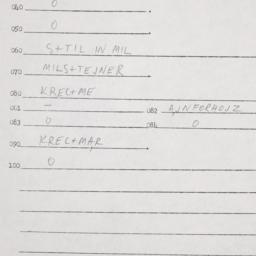 040 0
050 0
060 S+TIL IN MIL
070 MILS+TEJNER
080 KREL+ME
081 - 082 AJNFORHOJZ
083 0 084 0
090 KREL+MAR
100 0